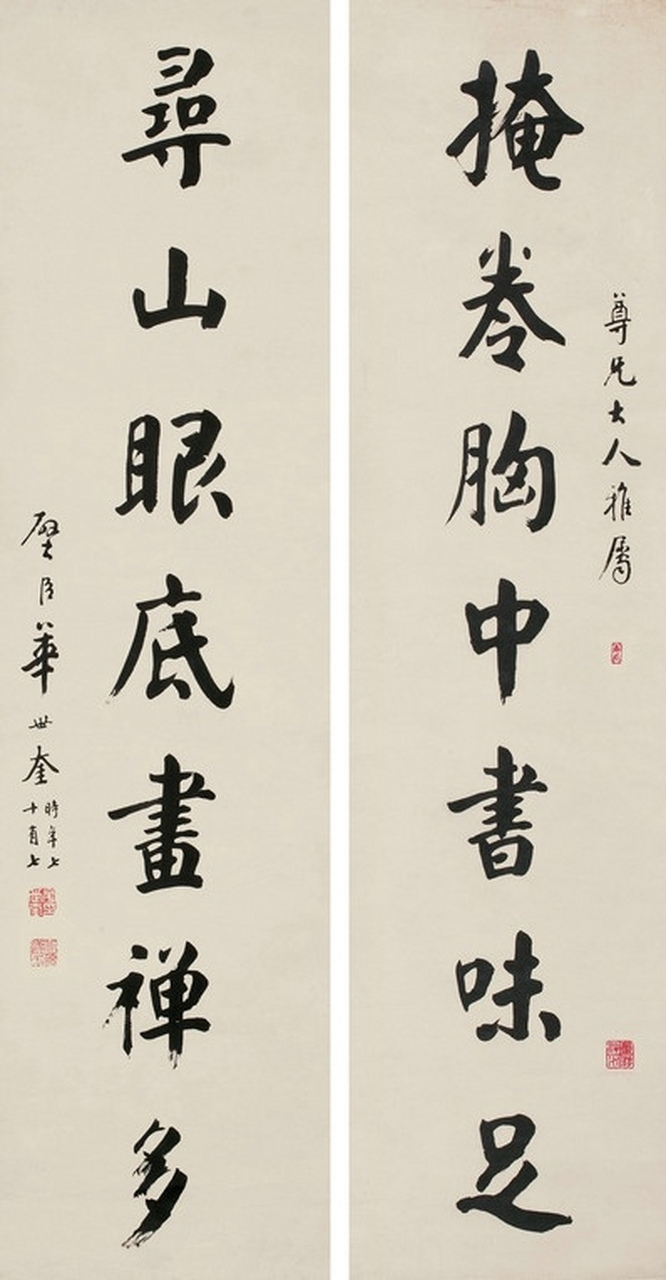 尊兄大人雅屬
掩卷胸中書味足
尋山眼底畫禪多
璧臣華世奎
時年七
十有七